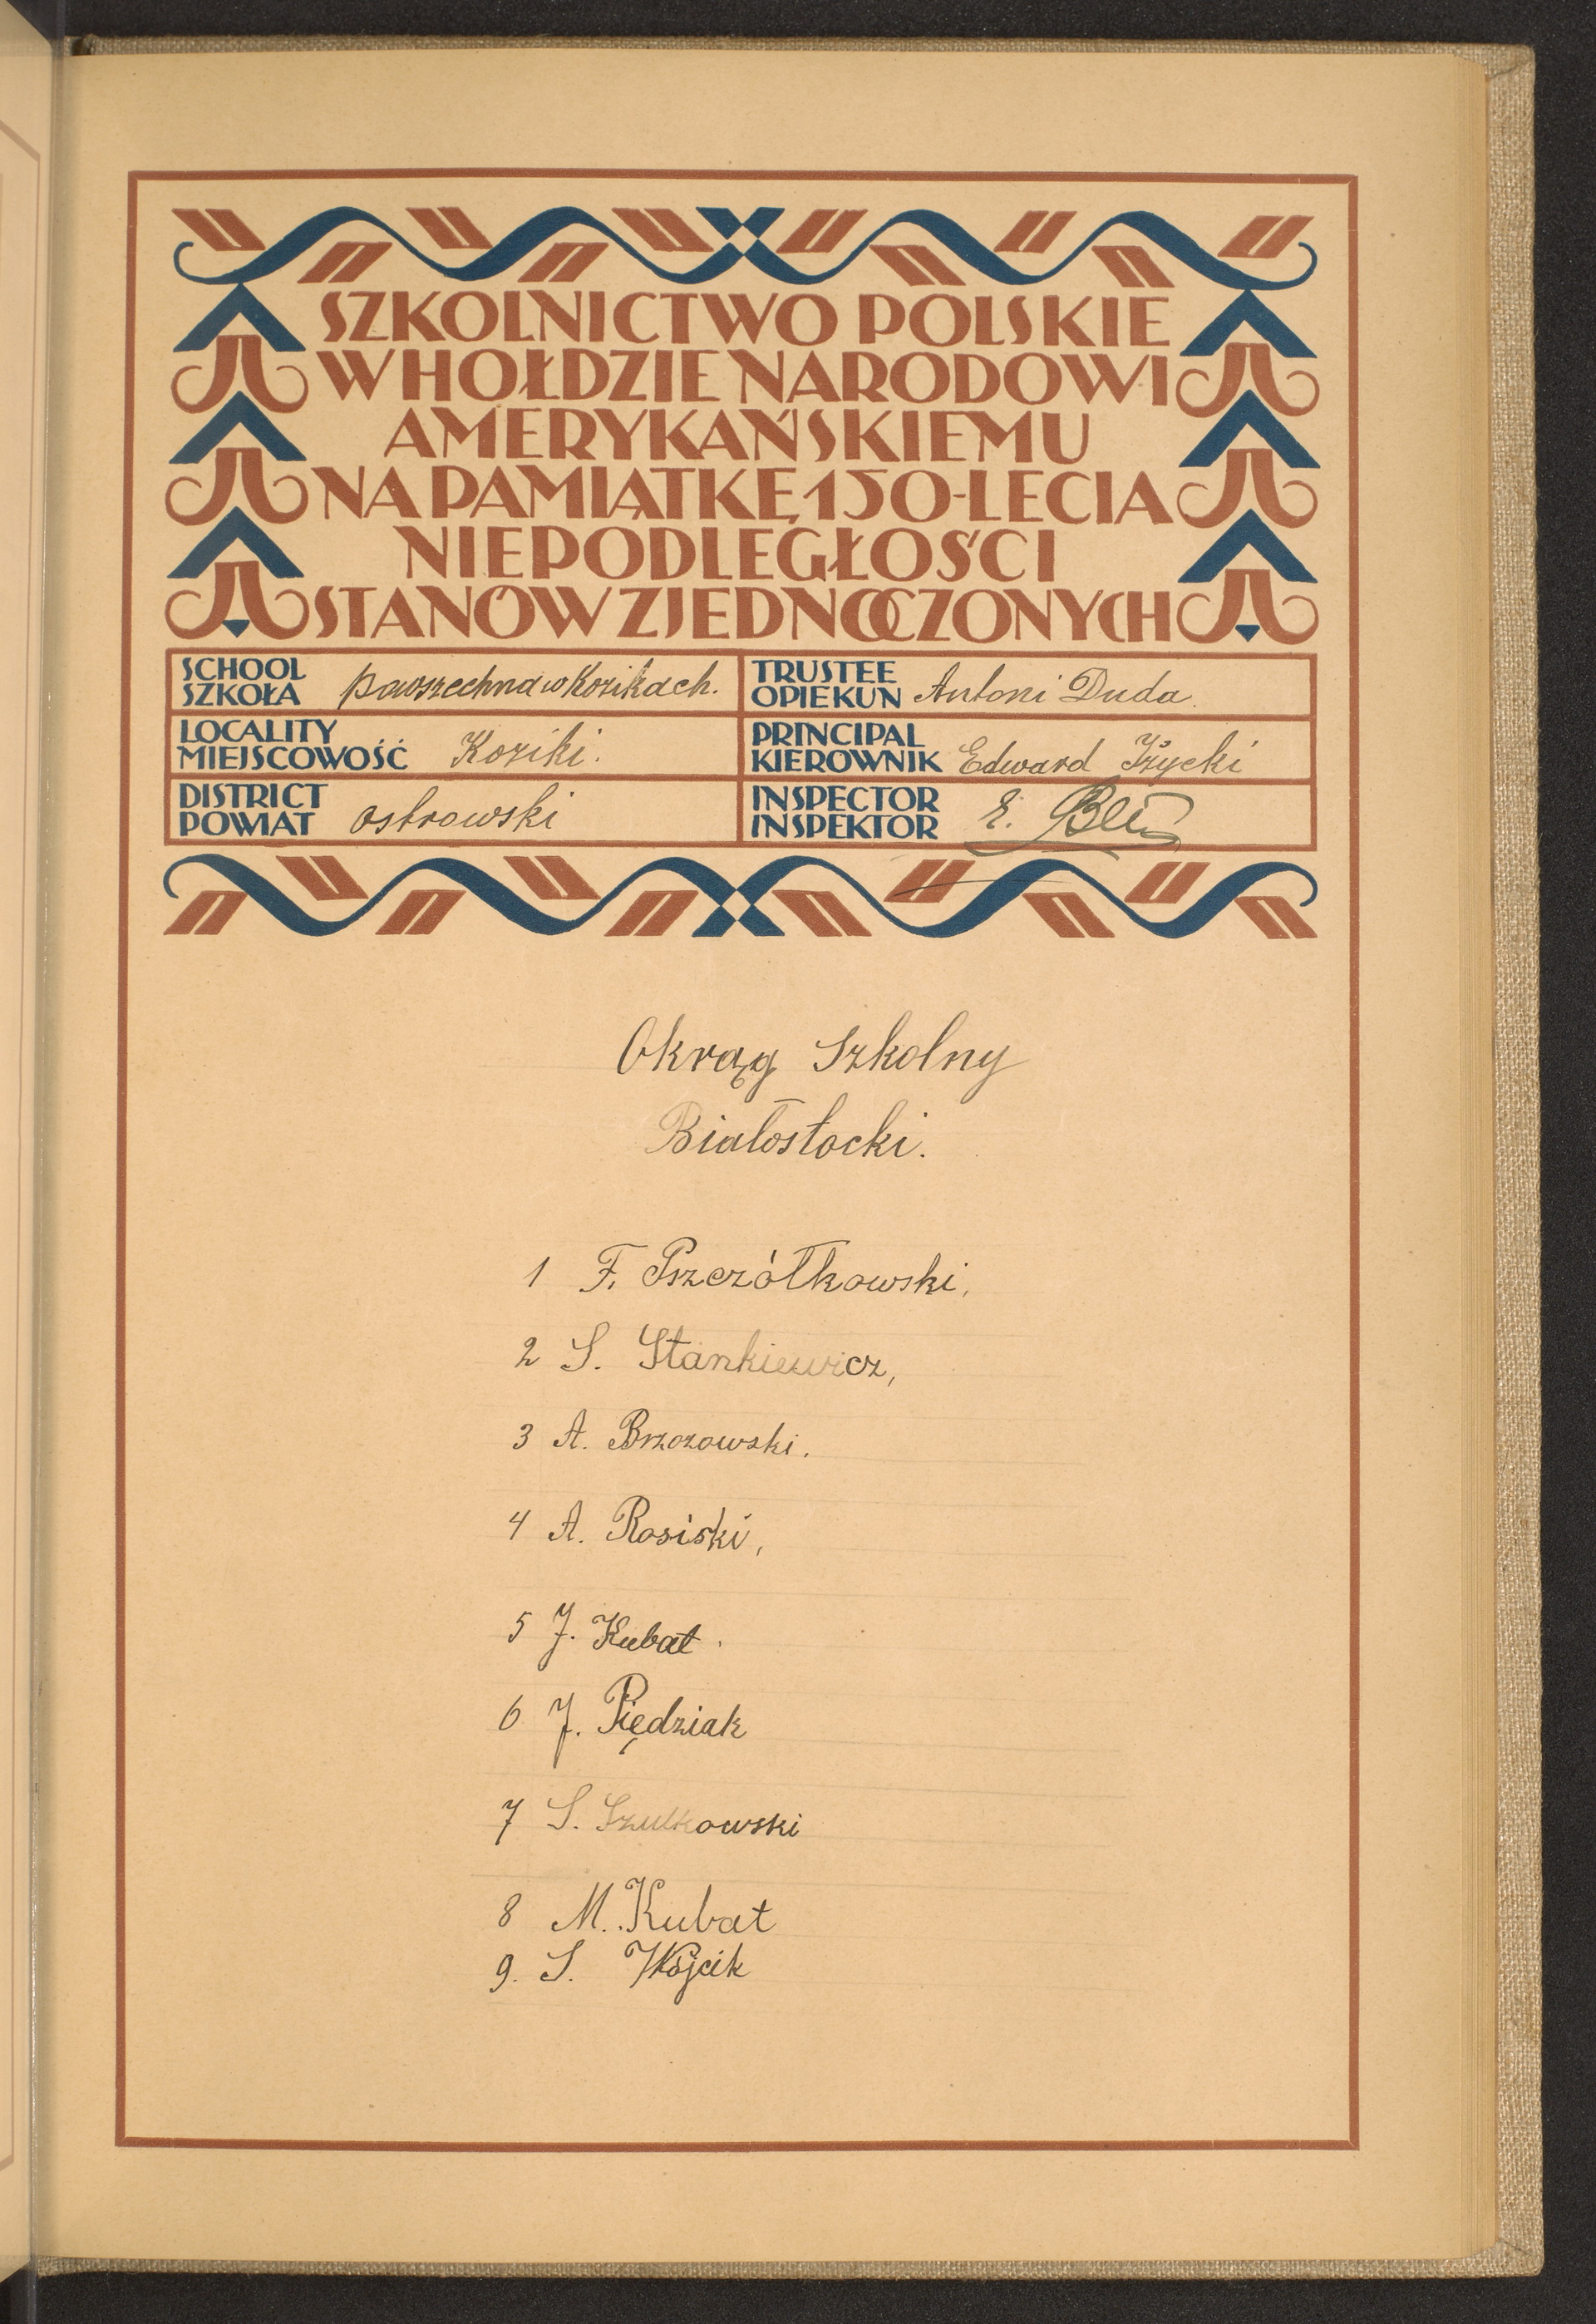 SZKOLNICTWO POLSKIE
W HOŁDZIE NARODOWI
AMERYKAŃSKIEMU
NA PAMIĄTKĘ 150-LECIA
NIEPODLEGŁOŚCI
STANÓW ZJEDNOCZONYCH
SCHOOL
SZKOŁA powszechna w Kozikach.
TRUSTEE
OPIEKUN Antoni Duda.
LOCALITY
MIEJSCOWOŚĆ Koziki.
PRINCIPAL
KIEROWNIK Edward Iżycki
DISTRICT
POWIAT ostrowski
INSPECTOR
INSPEKTOR E.
Okrąg Szkolny
Białostocki.
1 F. Pszczółkowski,
2 S. Stankiewicz,
3 A. Brzozowski.
4 A. Rosiski,
5 J. Kubat.
6 J. Piędziak
7 S. Szulkowski
8 M. Kubat
9. S. Wójcik